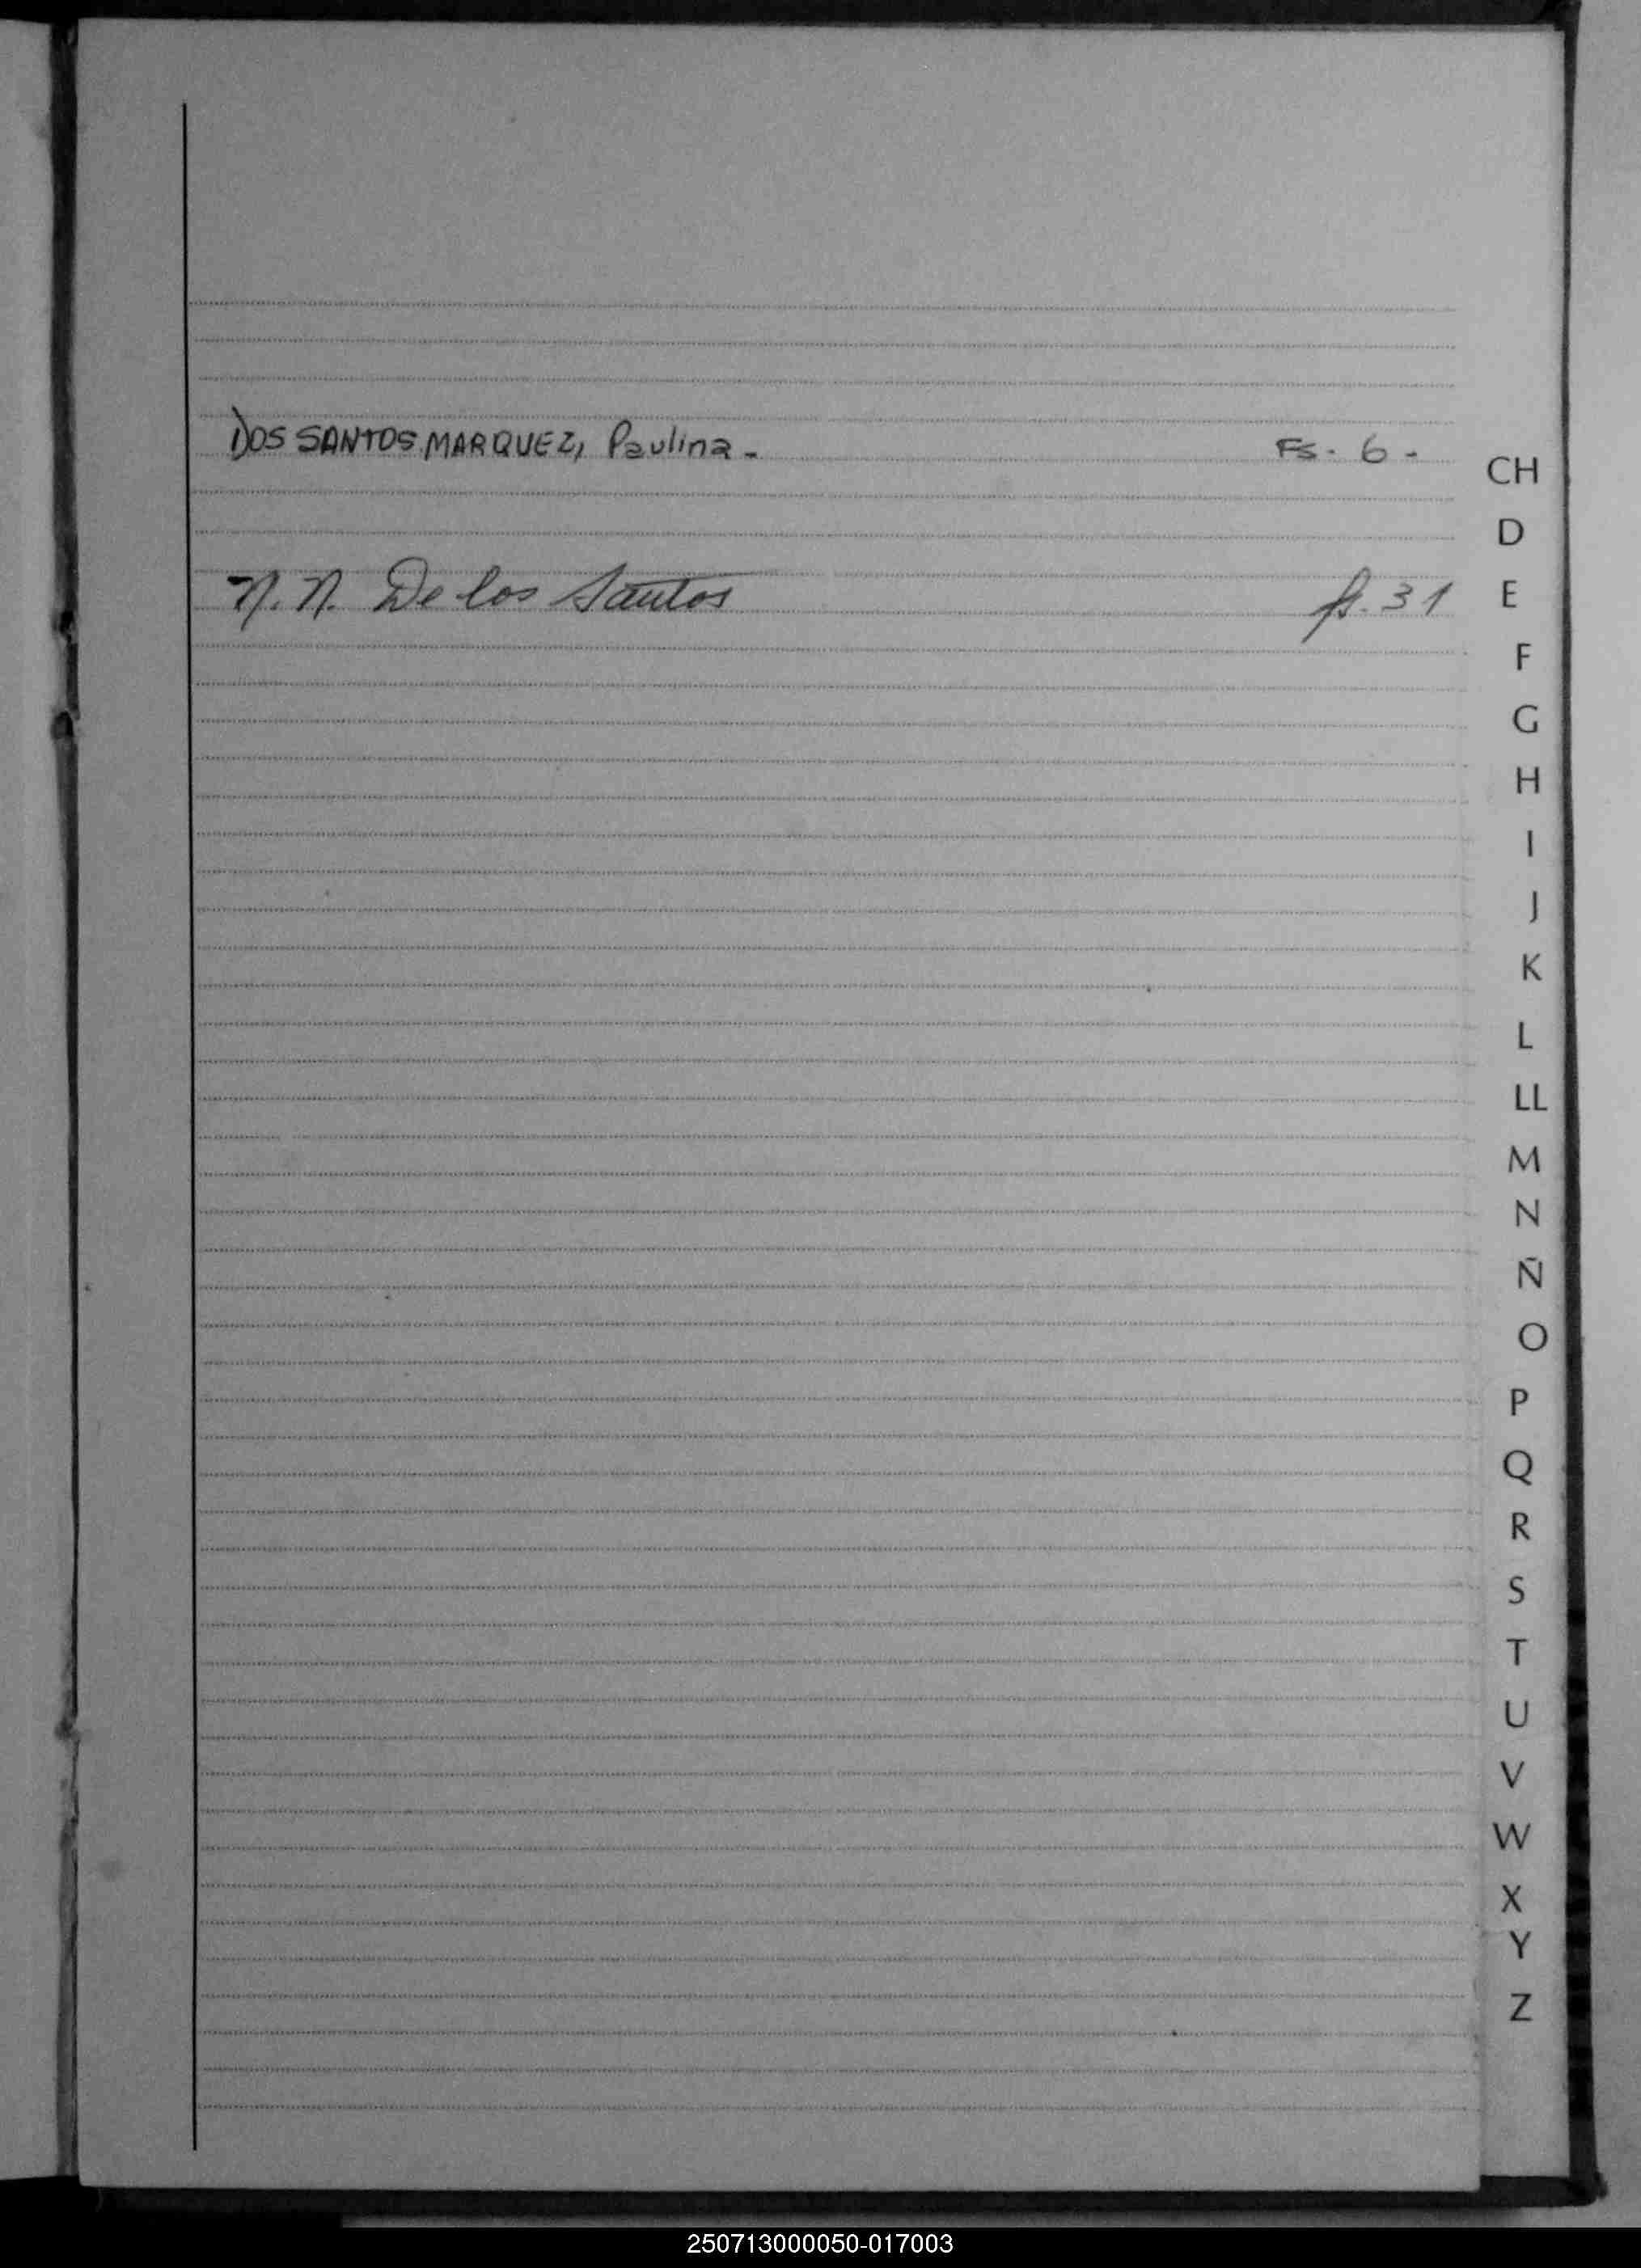 DOS SANTOS MARQUEZ, Paulina.- FS. 6 -
N.N. De los Santos fs. 31
CH
D
E
F
G
H
I
J
K
L
LL
M
N
Ñ
O
P
Q
R
S
T
U
V
W
X
Y
Z
250713000050-017003